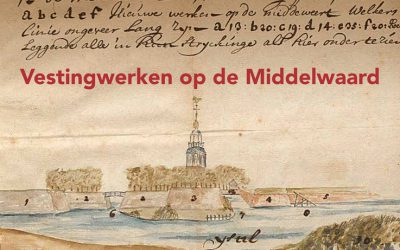 a b c d e f Nieuwe werken op de middelwert Welkers
linie ongeveer Lang zyn a 13: b 20: c 19: d 14: e 35: f 20:
Leggende alle in hun Stryckinge als hier onder te zien
Vestingwerken op de Middelwaard
1 2 3 4 5 6
7 8 9
ysul